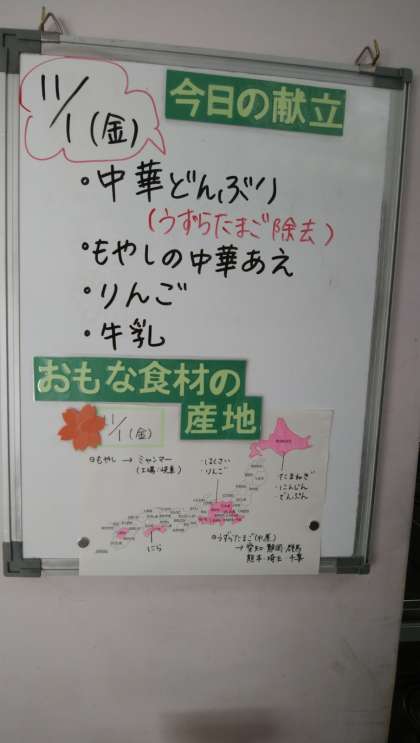 11/1(金)
今日の献立
・中華どんぶり
(うずらたまご除去)
・もやしの中華あえ
・りんご
・牛乳
おもな食材の
産地
11/1(金)
もやし → ミャンマー
・はくさい
・りんご
・たまねぎ
・にんじん
・でんぷん
にら
うずらたまご(水煮)
→ 愛知 静岡 群馬
熊本 埼玉 千葉